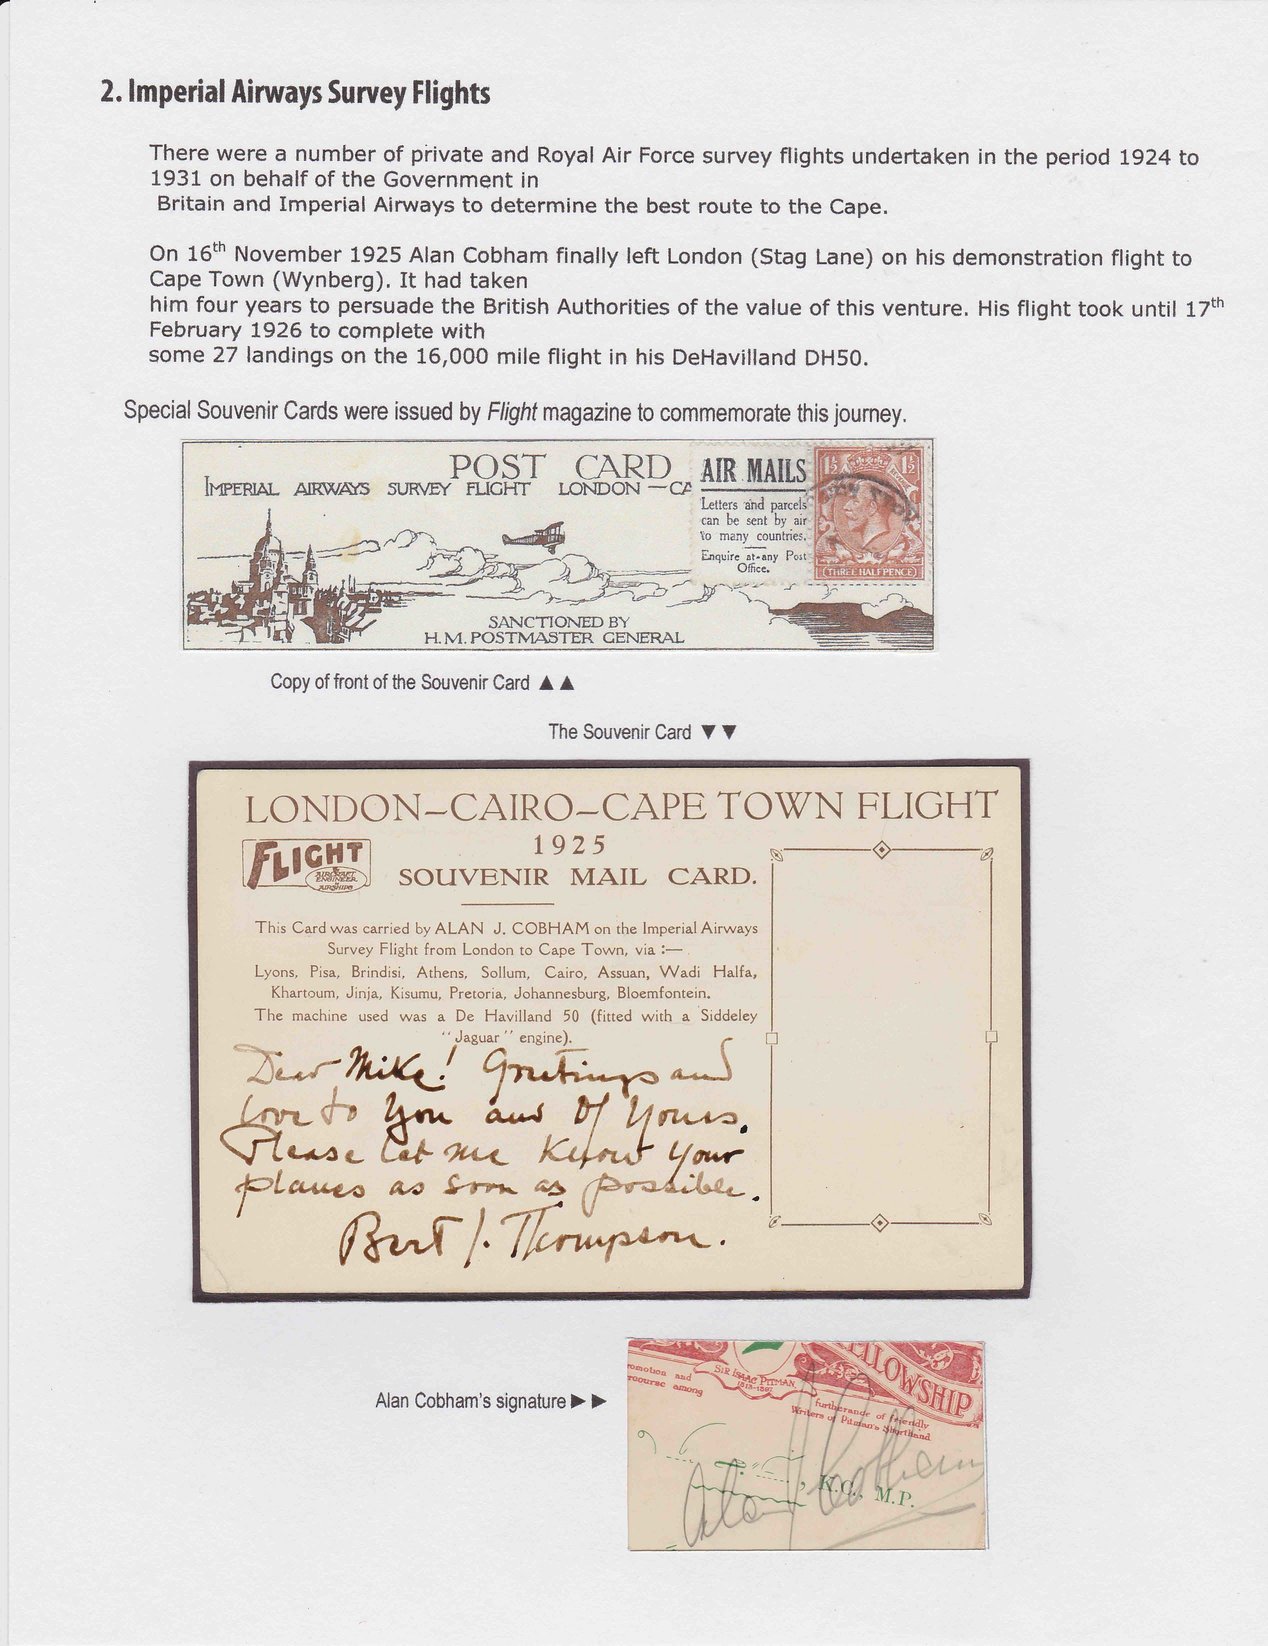 2. Imperial Airways Survey Flights
There were a number of private and Royal Air Force survey flights undertaken in the period 1924 to
1931 on behalf of the Government in
Britain and Imperial Airways to determine the best route to the Cape.
On 16th November 1925 Alan Cobham finally left London (Stag Lane) on his demonstration flight to
Cape Town (Wynberg). It had taken
him four years to persuade the British Authorities of the value of this venture. His flight took until 17th
February 1926 to complete with
some 27 landings on the 16,000 mile flight in his DeHavilland DH50.
Special Souvenir Cards were issued by Flight magazine to commemorate this journey.
POST CARD
IMPERIAL AIRWAYS SURVEY FLIGHT LONDON — CA
AIR MAILS
Letters and parcels
can be sent by air
to many countries.
Enquire at any Post
Office.
1½ 1½
THREE HALFPENCE
SANCTIONED BY
H.M. POSTMASTER GENERAL
Copy of front of the Souvenir Card ▲▲
The Souvenir Card ▼▼
LONDON–CAIRO–CAPE TOWN FLIGHT
1925
FLIGHT
AIRCRAFT
ENGINEER
& AIRSHIPS
SOUVENIR MAIL CARD.
This Card was carried by ALAN J. COBHAM on the Imperial Airways
Survey Flight from London to Cape Town, via :—
Lyons, Pisa, Brindisi, Athens, Sollum, Cairo, Assuan, Wadi Halfa,
Khartoum, Jinja, Kisumu, Pretoria, Johannesburg, Bloemfontein.
The machine used was a De Havilland 50 (fitted with a Siddeley
"Jaguar" engine).
Dear Mike! Greetings and
love to You and Of Yours.
Please let me know your
planes as soon as possible.
Bert J. Thompson.
Alan Cobham's signature ►►
FELLOWSHIP
SIR ISAAC PITMAN
1813-1897
romotion and
rcourse among
furtherance of friendly
Writers of Pitman's Shorthand
, K.C., M.P.
Alan J Cobham